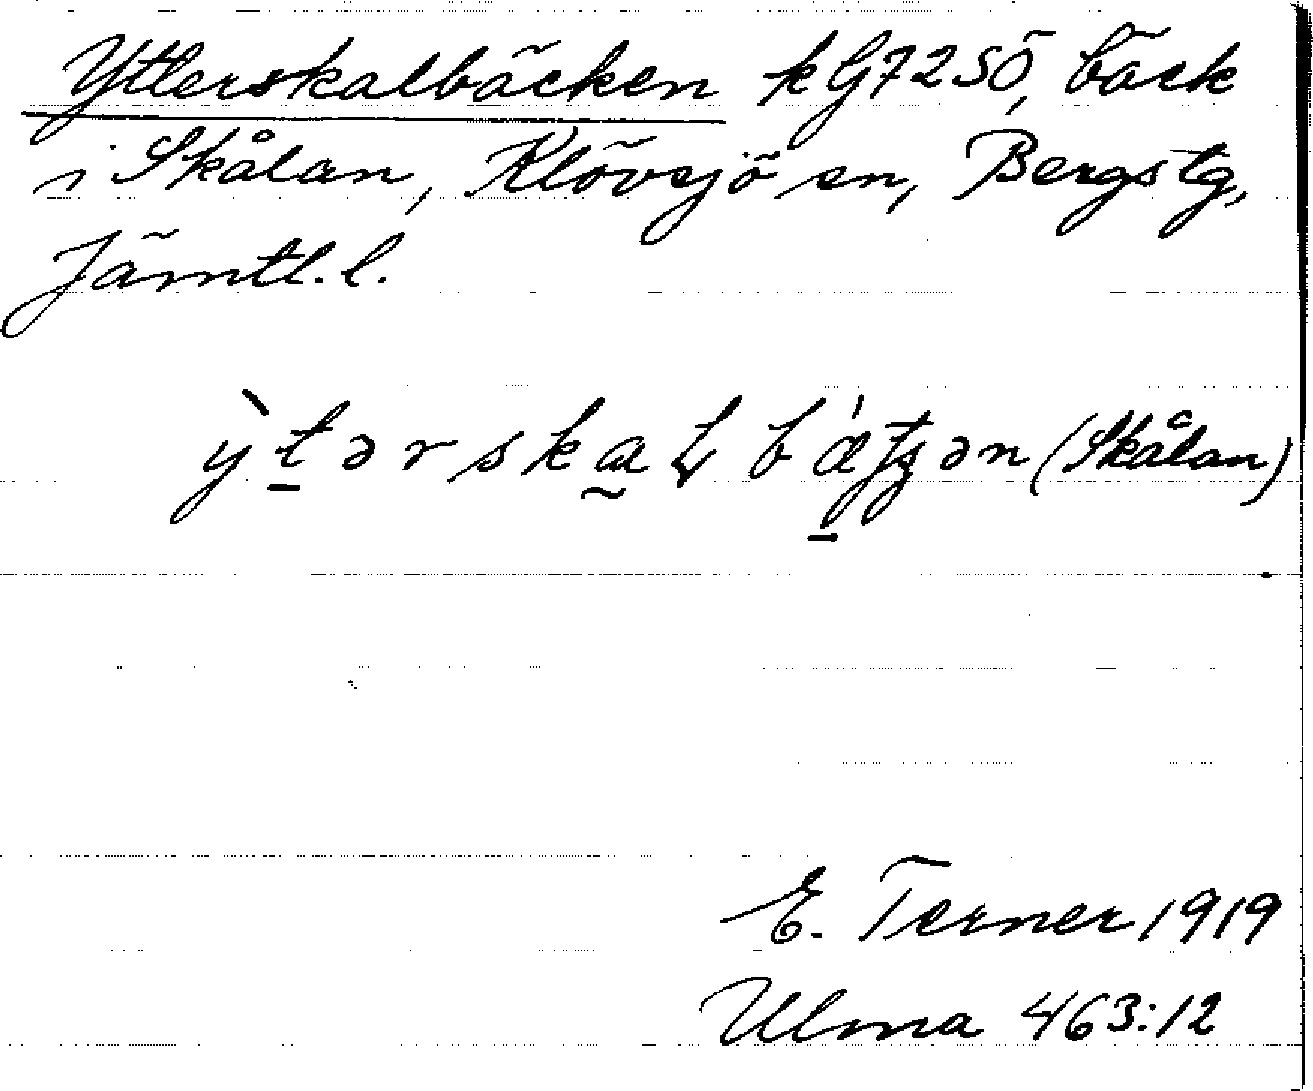 Ytterskalbäcken kG 7250, bäck
i Skålan, Klövsjö sn, Bergs tg,
Jämtl. l.
(Skålan)
E. Terner 1919
Ulma 463:12